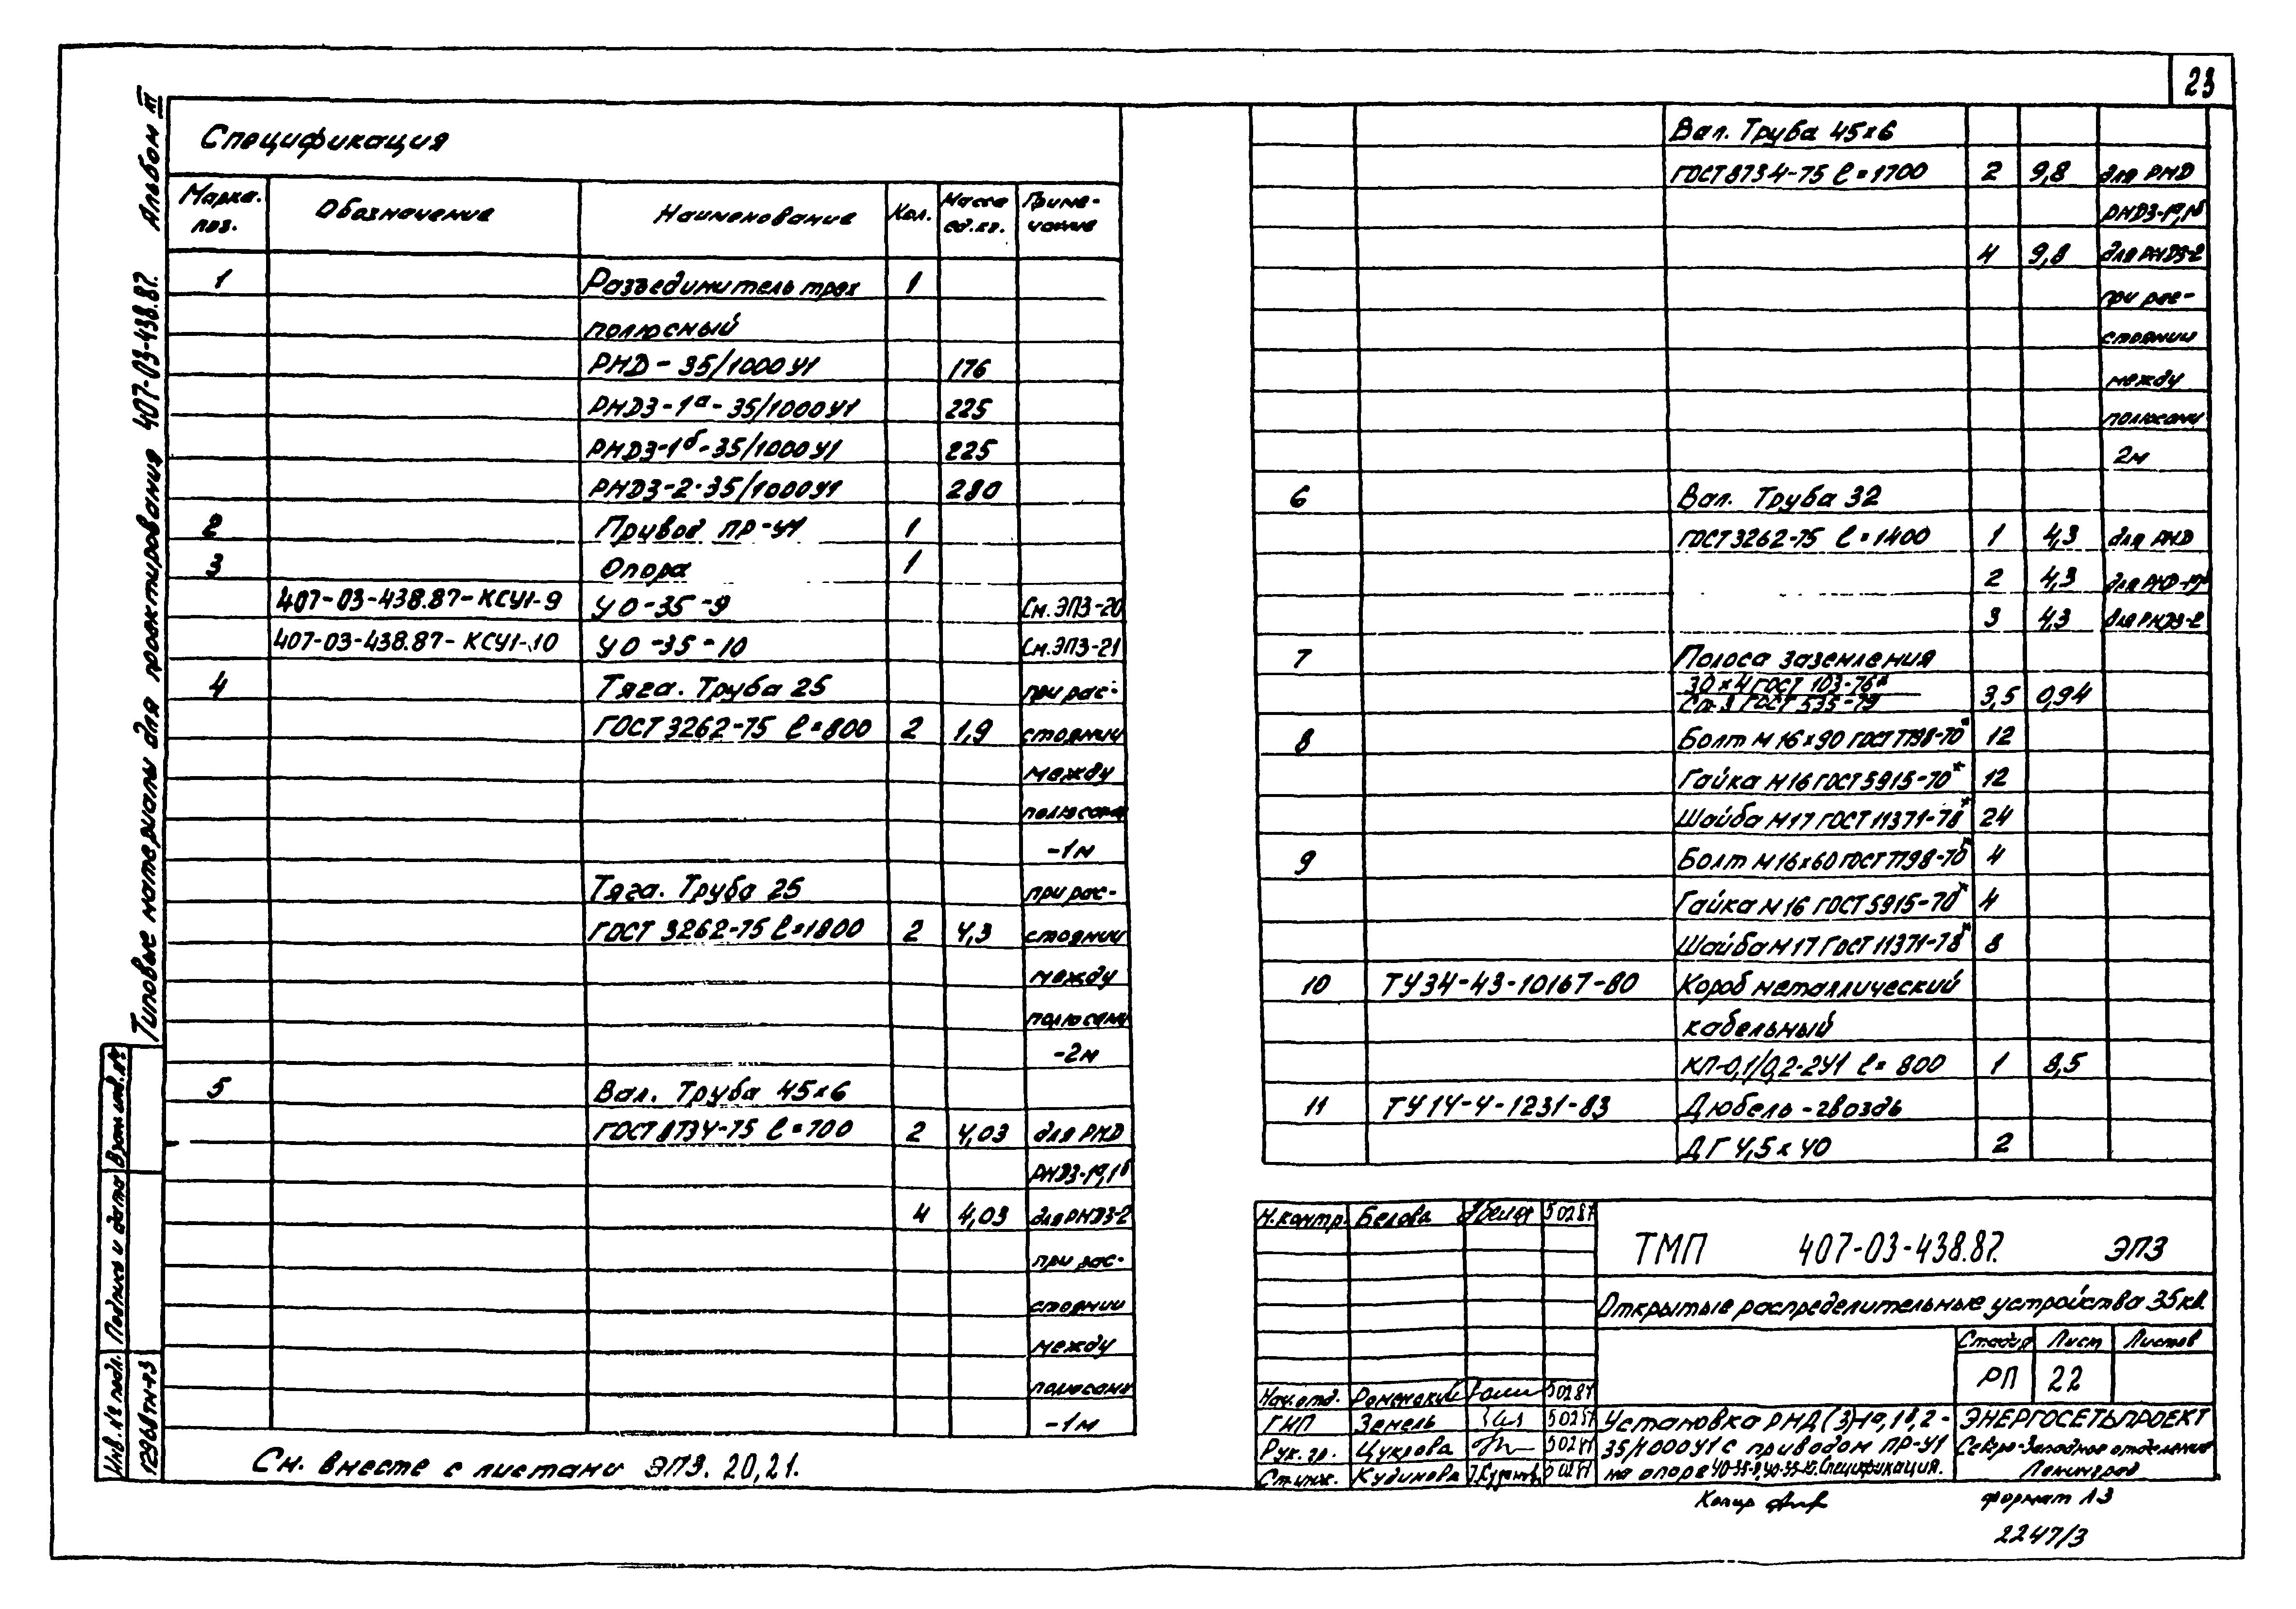 23
Типовые материалы для проектирования 407-03-438.87. Альбом III
Спецификация
Марка. поз. Обозначение Наименование Кол. Масса ед.кг. Приме-чание
1 Разъединитель трех 1
полюсный
РНД-35/1000У1 176
РНДЗ-1а-35/1000У1 225
РНДЗ-1б-35/1000У1 225
РНДЗ-2-35/1000У1 280
2 Привод ПР-У1 1
3 Опора 1
407-03-438.87-КСУ1-9 УО-35-9 См.ЭПЗ-20
407-03-438.87-КСУ1-10 УО-35-10 См.ЭПЗ-21
4 Тяга. Труба 25 при рас-
ГОСТ 3262-75 ℓ=800 2 1,9 стоянии
между
полюсами
-1м
Тяга. Труба 25 при рас-
ГОСТ 3262-75 ℓ=1800 2 4,3 стоянии
между
полюсами
-2м
5 Вал. Труба 45х6
ГОСТ 8734-75 ℓ=700 2 4,03 для РНД
РНДЗ-1а,1б
4 4,03 для РНДЗ-2
при рас-
стоянии
между
полюсами
-1м
См. вместе с листами ЭПЗ. 20,21.
Вал. Труба 45х6
ГОСТ 8734-75 ℓ=1700 2 9,8 для РНД
РНДЗ-1а,1б
4 9,8 для РНДЗ-2
при рас-
стоянии
между
полюсами
2м
6 Вал. Труба 32
ГОСТ 3262-75 ℓ=1400 1 4,3 для РНД
2 4,3
3 4,3 для РНДЗ-2
7 Полоса заземления
30х4 ГОСТ 103-76*
Ст.3 ГОСТ 535-79 3,5 0,94
8 Болт М16х90 ГОСТ 7798-70* 12
Гайка М16 ГОСТ 5915-70* 12
Шайба М17 ГОСТ 11371-78* 24
9 Болт М16х60 ГОСТ 7798-70* 4
Гайка М16 ГОСТ 5915-70* 4
Шайба М17 ГОСТ 11371-78* 8
10 ТУ34-43-10167-80 Короб металлический
кабельный
КП-0,1/0,2-2У1 ℓ=800 1 8,5
11 ТУ14-4-1231-83 Дюбель-гвоздь
ДГ 4,5х40 2
Н.контр. Белова 50287
ТМП 407-03-438.87. ЭПЗ
Открытые распределительные устройства 35кв.
Стадия Лист Листов
РП 22
Нач.отд. Роменский 50287
ГИП Земель 50287
Рук.гр. Цукрова 50287
Ст.инж. Кудинова 50287
Установка РНД(З)-1а,1б,2-
35/1000У1 с приводом ПР-У1
на опоре УО-35-9,УО-35-10. Спецификация.
ЭНЕРГОСЕТЬПРОЕКТ
Северо-Западное отделение
Ленинград
Копир
формат А3
2247/3
Инв.№ подл. Подпись и дата Взам.инв.№
12968тм-т3